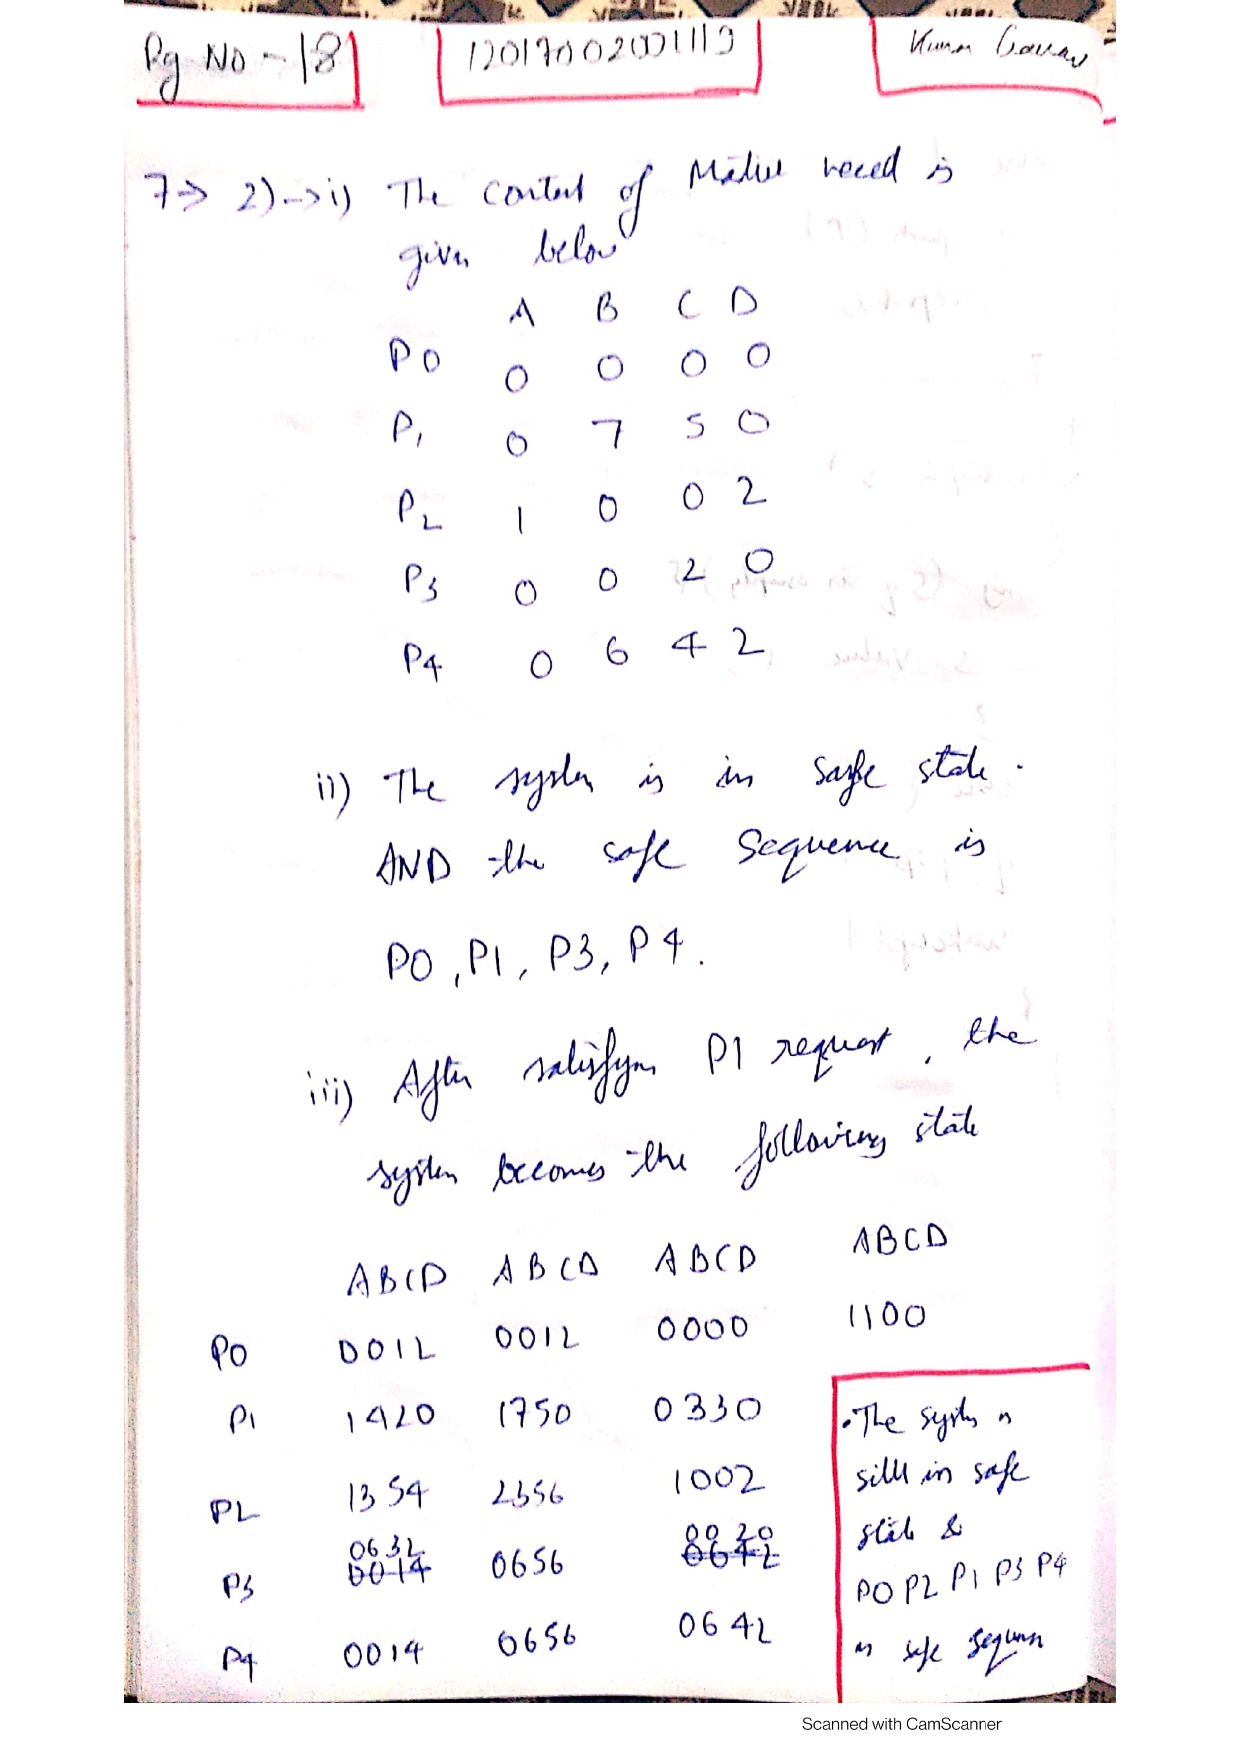 Pg No - 18
12017002001119
Kumar Gaurav
7=> 2)-> i) The content of Matrix need is
given below
A B C D
P0 0 0 0 0
P1 0 7 5 0
P2 1 0 0 2
P3 0 0 2 0
P4 0 6 4 2
ii) The system is in safe state.
AND the safe sequence is
P0, P1, P3, P4.
iii) After satisfying P1 request, the
system becomes the following state
ABCD ABCD ABCD ABCD
P0 0012 0012 0000 1100
P1 1420 1750 0330
P2 1354 2356 1002
P3 0632 0656 0020
P4 0014 0656 0642
• The system is
still in safe
state &
P0 P2 P1 P3 P4
is safe sequence
Scanned with CamScanner